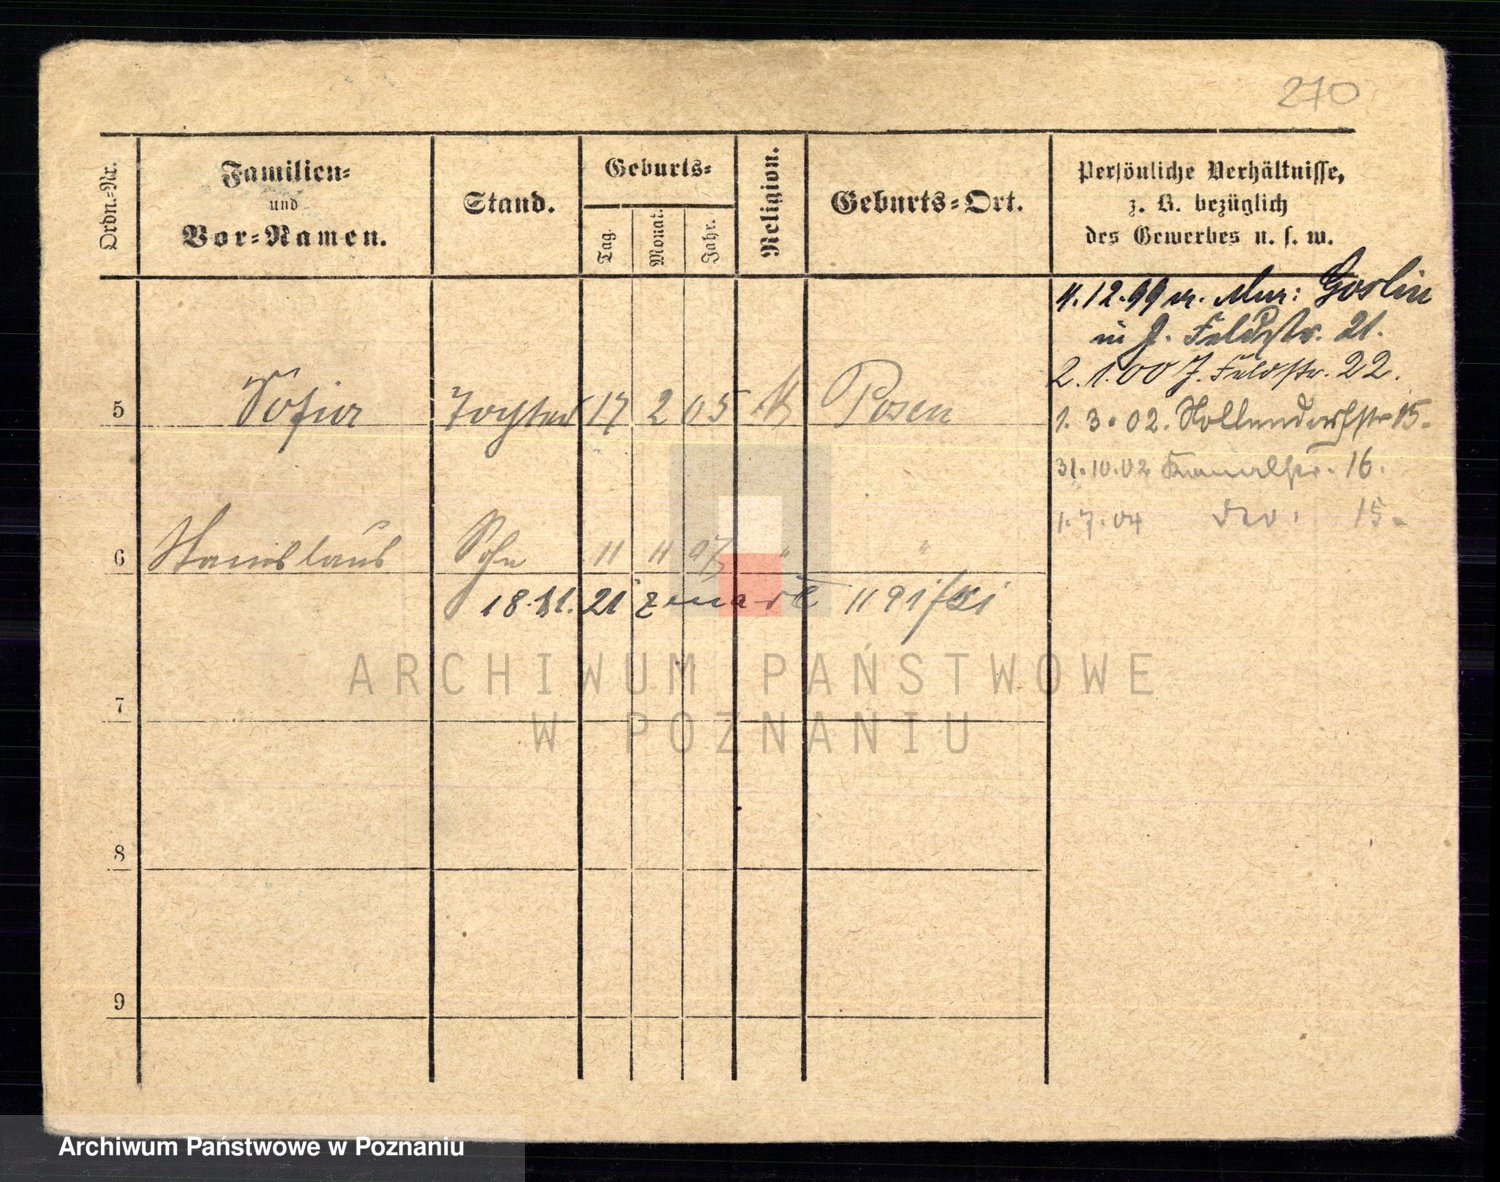 270
Ordn.-Nr.
Familien-
und
Vor-Namen.
Stand.
Geburts-
Tag.
Monat.
Jahr.
Religion.
Geburts-Ort.
Persönliche Verhältnisse,
z. B. bezüglich
des Gewerbes u. s. w.
4.12.99 v. Mur: Goslin
in J. Feldstr. 21.
2.1.00 J. Feldstr. 22.
5 Sofia Tochter 17 2 05 K Posen
1.3.02. Nollendorfstr 15.
31.10.02 Kanalstr. 16.
1.7.04 15.
6 Stanislaus Sohn 11 11 07 " "
18.11.21
7
8
9
ARCHIWUM PAŃSTWOWE
W POZNANIU
Archiwum Państwowe w Poznaniu